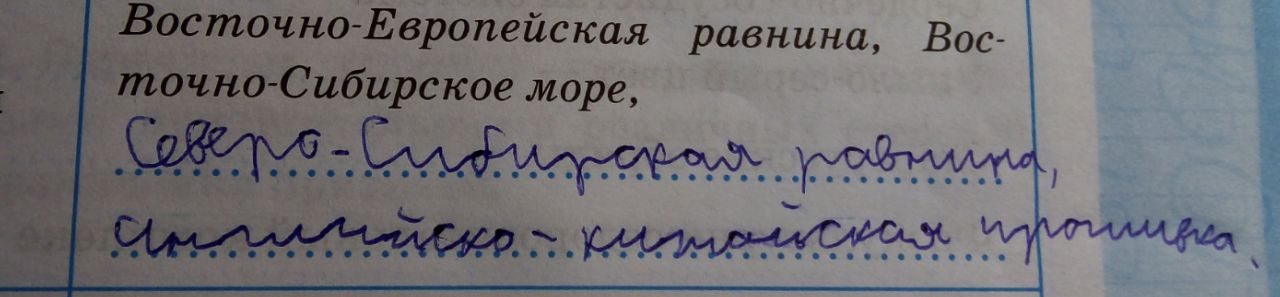 Восточно-Европейская равнина, Вос-
точно-Сибирское море,
Северо-Сибирская равнина,
английско-китайская прошивка.